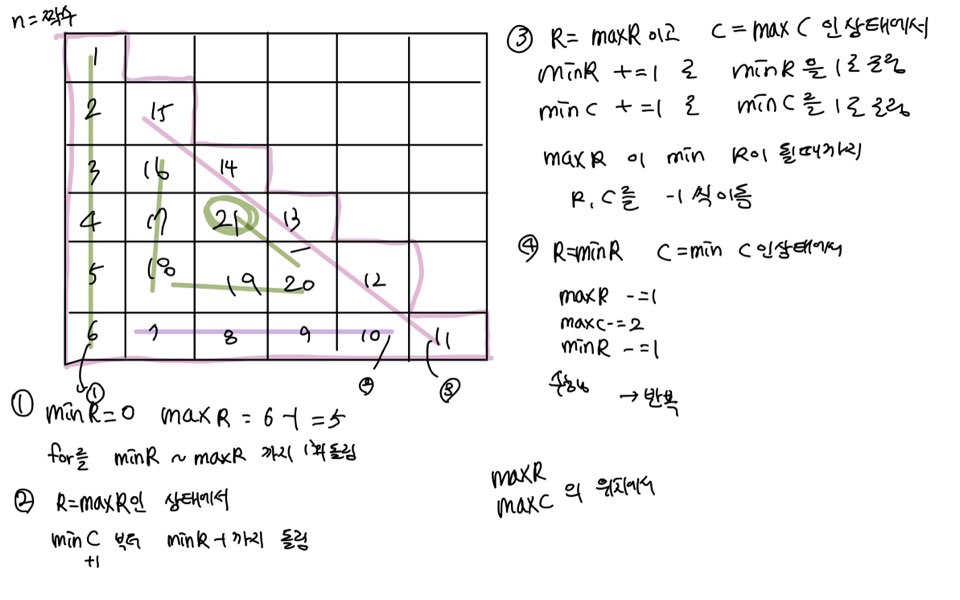 n = 짝수
1
2 15
3 16 14
4 17 21 13
5 18 19 20 12
6 7 8 9 10 11
① ② ③
① minR=0 maxR = 6-1 =5
for를 minR ~ maxR 까지 1회 돌림
② R=maxR인 상태에서
min C 부터 minR-1 까지 돌림
+1
③ R= maxR 이고 C = max C 인상태에서
minR +=1 로 minR 을 1로 올림
min C +=1 로 min C를 1로 올림
max R 이 min R이 될때까지
R, C를 -1 씩이동
④ R=minR C=min C 인상태에서
maxR -=1
maxC-=2
minR -=1
→ 반복
maxR
maxC 의 위치에서